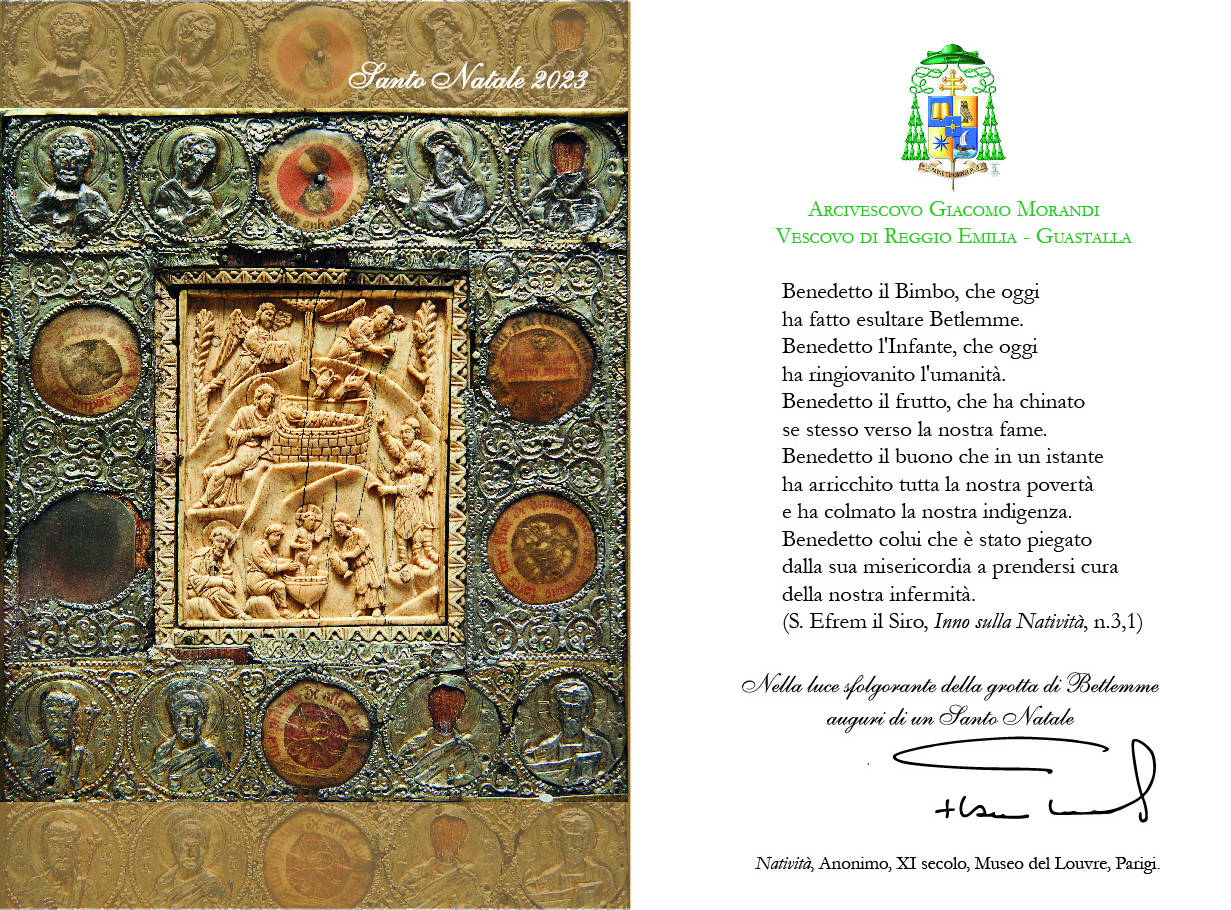 Santo Natale 2023
Arcivescovo Giacomo Morandi
Vescovo di Reggio Emilia - Guastalla
Benedetto il Bimbo, che oggi
ha fatto esultare Betlemme.
Benedetto l'Infante, che oggi
ha ringiovanito l'umanità.
Benedetto il frutto, che ha chinato
se stesso verso la nostra fame.
Benedetto il buono che in un istante
ha arricchito tutta la nostra povertà
e ha colmato la nostra indigenza.
Benedetto colui che è stato piegato
dalla sua misericordia a prendersi cura
della nostra infermità.
(S. Efrem il Siro, Inno sulla Natività, n.3,1)
Nella luce sfolgorante della grotta di Betlemme
auguri di un Santo Natale
Natività, Anonimo, XI secolo, Museo del Louvre, Parigi.